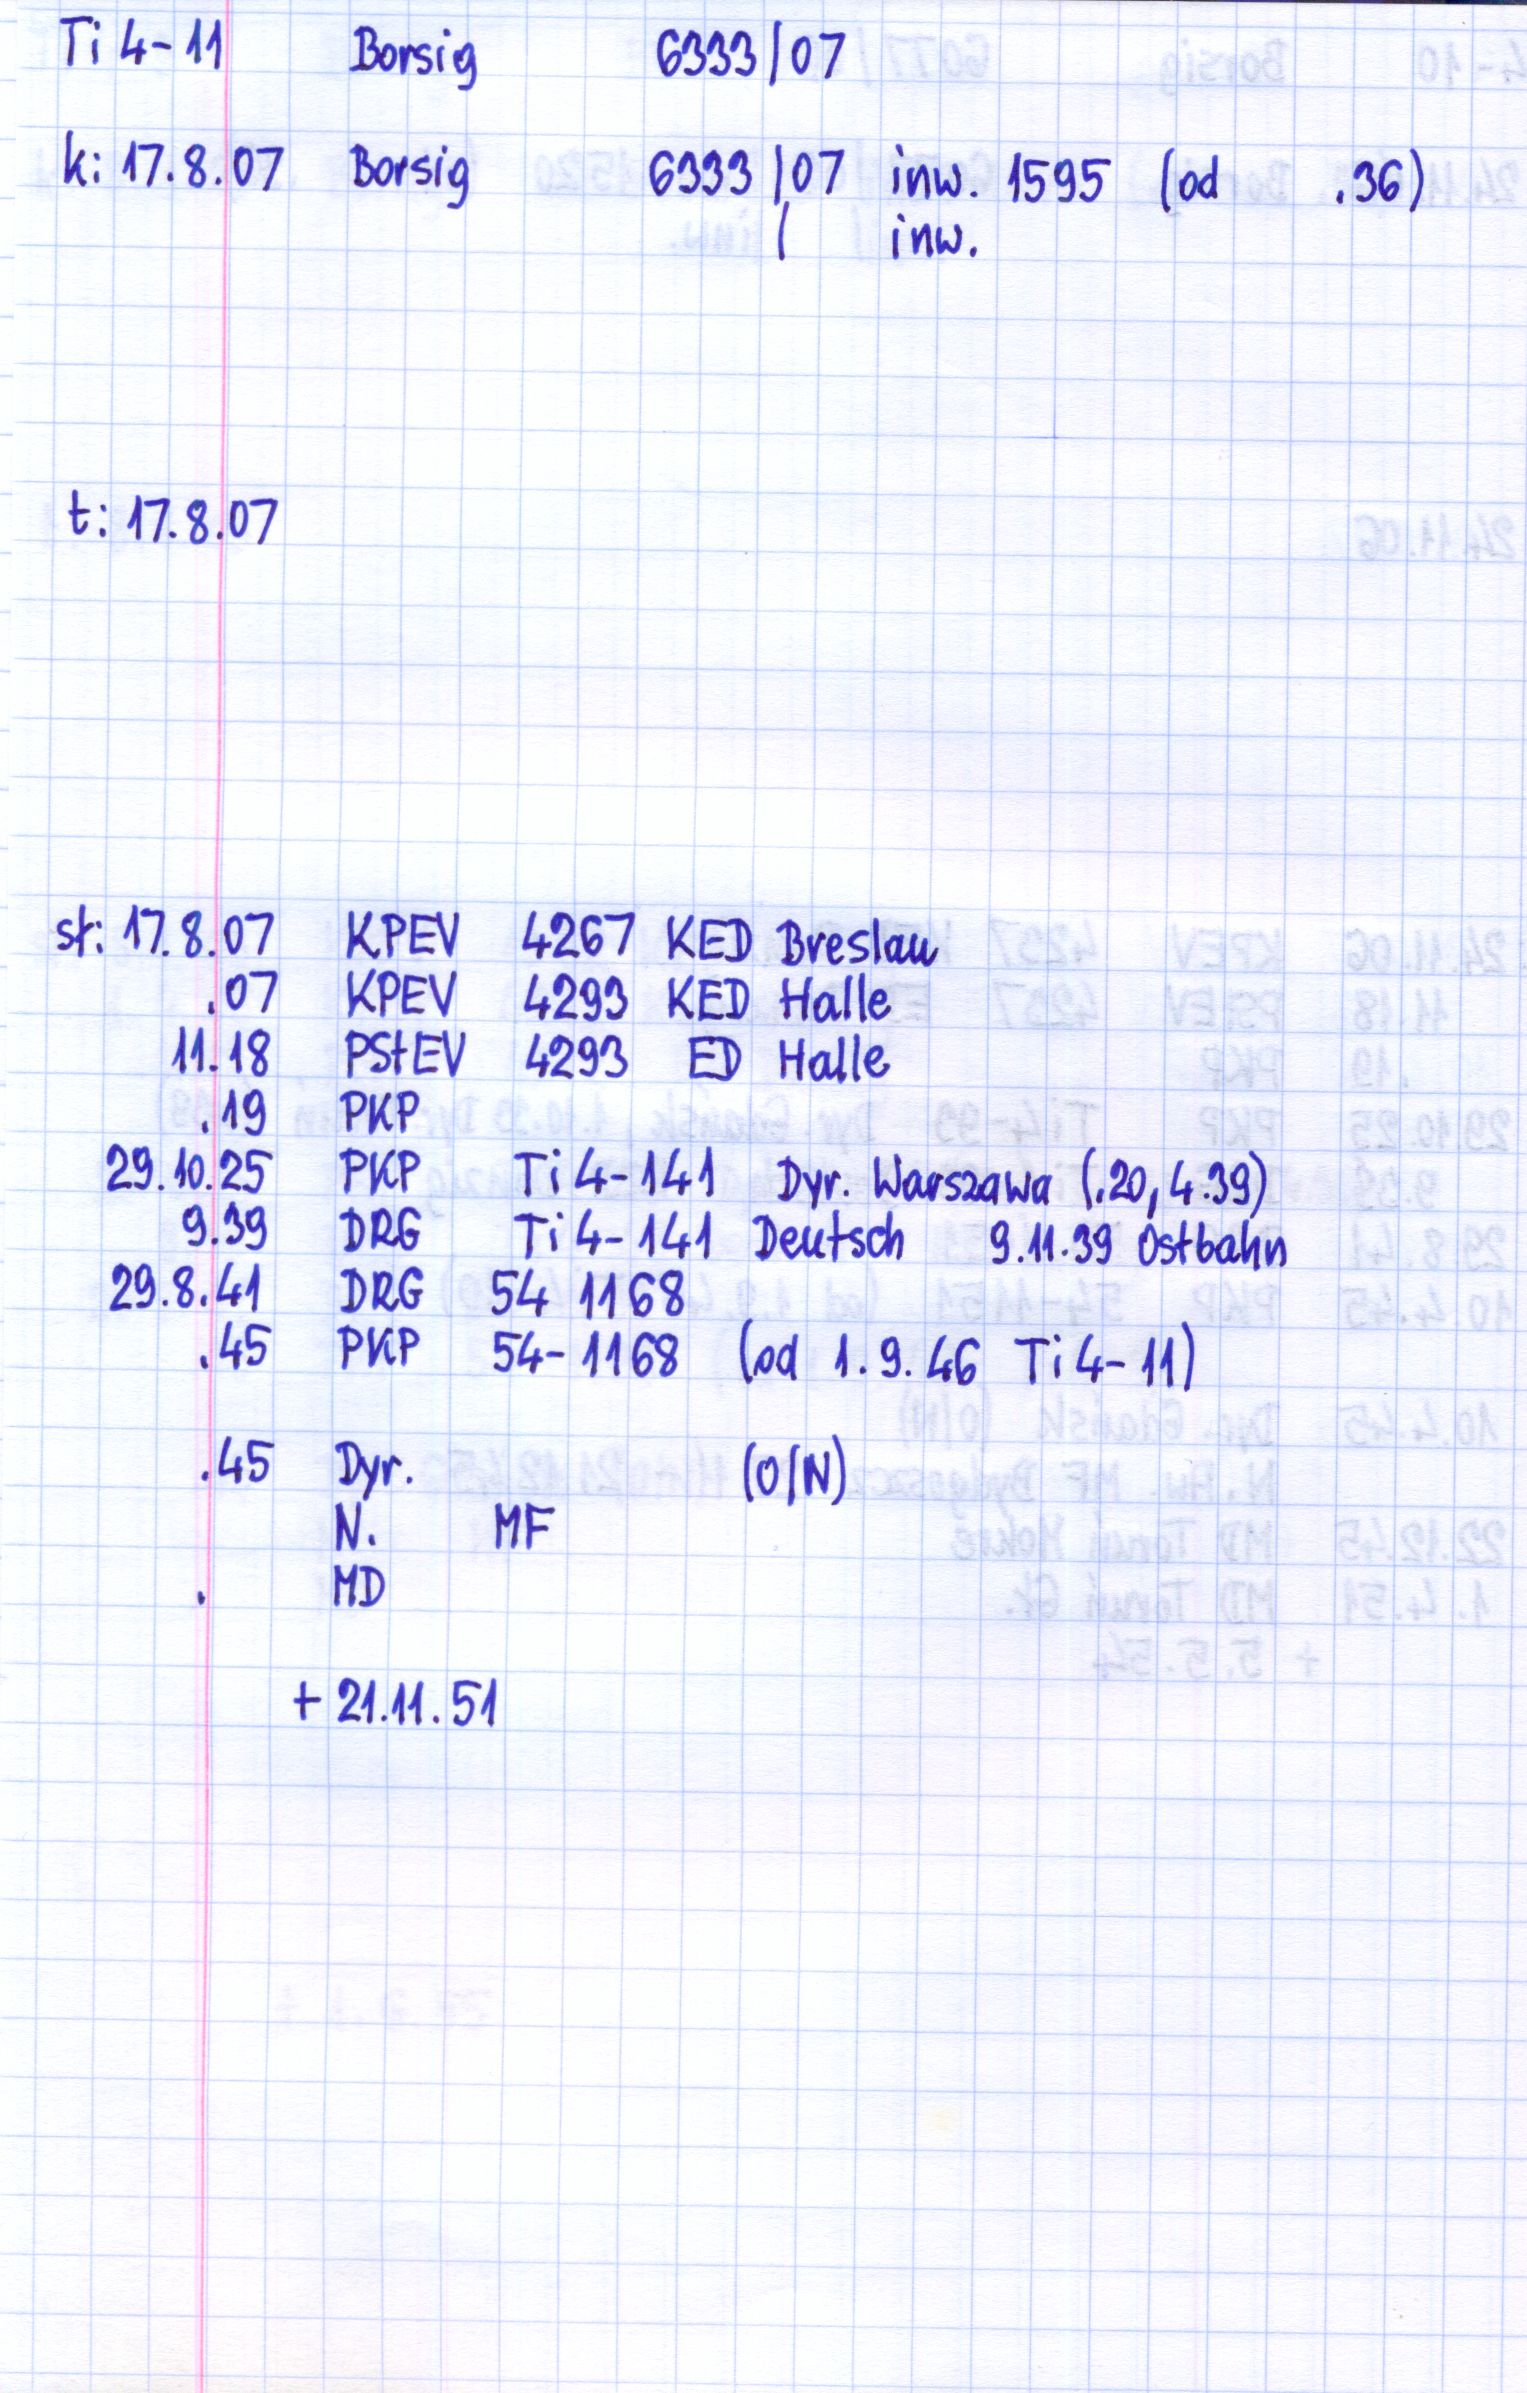 Ti 4-11 Borsig 6333/07
k: 17.8.07 Borsig 6333/07 inw. 1595 (od .36)
/ inw.
t: 17.8.07
st: 17.8.07 KPEV 4267 KED Breslau
.07 KPEV 4293 KED Halle
11.18 PStEV 4293 ED Halle
.19 PKP
29.10.25 PKP Ti 4-141 Dyr. Warszawa (.20, 4.39)
9.39 DRG Ti 4-141 Deutsch 9.11.39 Ostbahn
29.8.41 DRG 54 1168
.45 PKP 54-1168 (od 1.9.46 Ti 4-11)
.45 Dyr. (O/N)
N. MF
. MD
+ 21.11.51